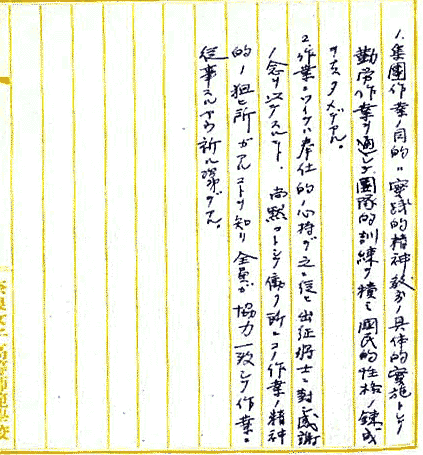 1.集團作業ノ目的ハ實踐的精神敎育ノ具体的實施トシテ
勤労作業ヲ通シテ、團隊的訓練ヲ積ミ國民的性格ノ錬成
ヲナスタメデアル。
2.作業ニツイテハ奉仕的ノ心持デ之ニ從ヒ出征将士ニ對シ感謝
ノ念ヲ以テスルコト、尚黙々トシテ働ク所ニコノ作業ノ精神
的ノ狙ヒ所ガアルコトヲ知リ全員ガ協力一致シテ作業ニ
従事スルヤウ祈ル次第デアル。
奈良女子高等師範學校